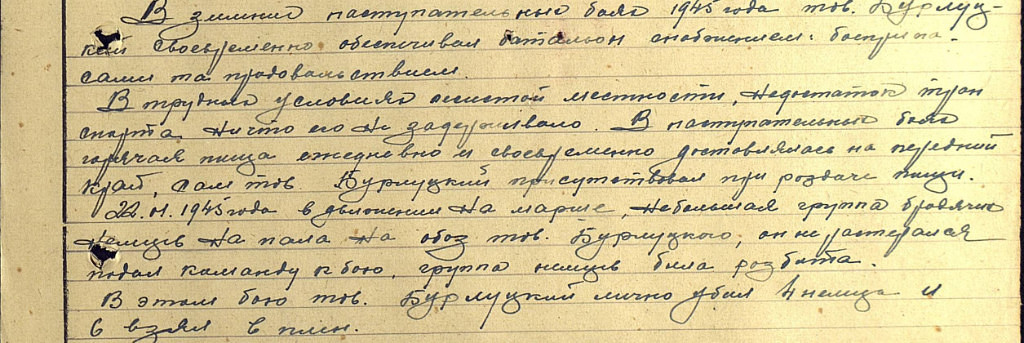 В зимних наступательных боях 1945 года тов. Бурлуц-
кий своевременно обеспечивал батальон снабжением: боеприпа-
сами та продовольствием.
В трудных условиях лесистой местности, недостаток тран
спорта, ничто его не задерживало. В наступательных боях
горячая пища ежедневно и своевременно доставлялась на передний
край, сам тов. Бурлуцкий присутствовал при роздаче пищи.
22.01.1945 года в движении на марше, небольшая группа бродячих
немцев напала на обоз тов. Бурлуцкого, он не растерялся
подал команду к бою, группа немцев была розбита.
В этом бою тов. Бурлуцкий лично убил 4 немца и
6 взял в плен.